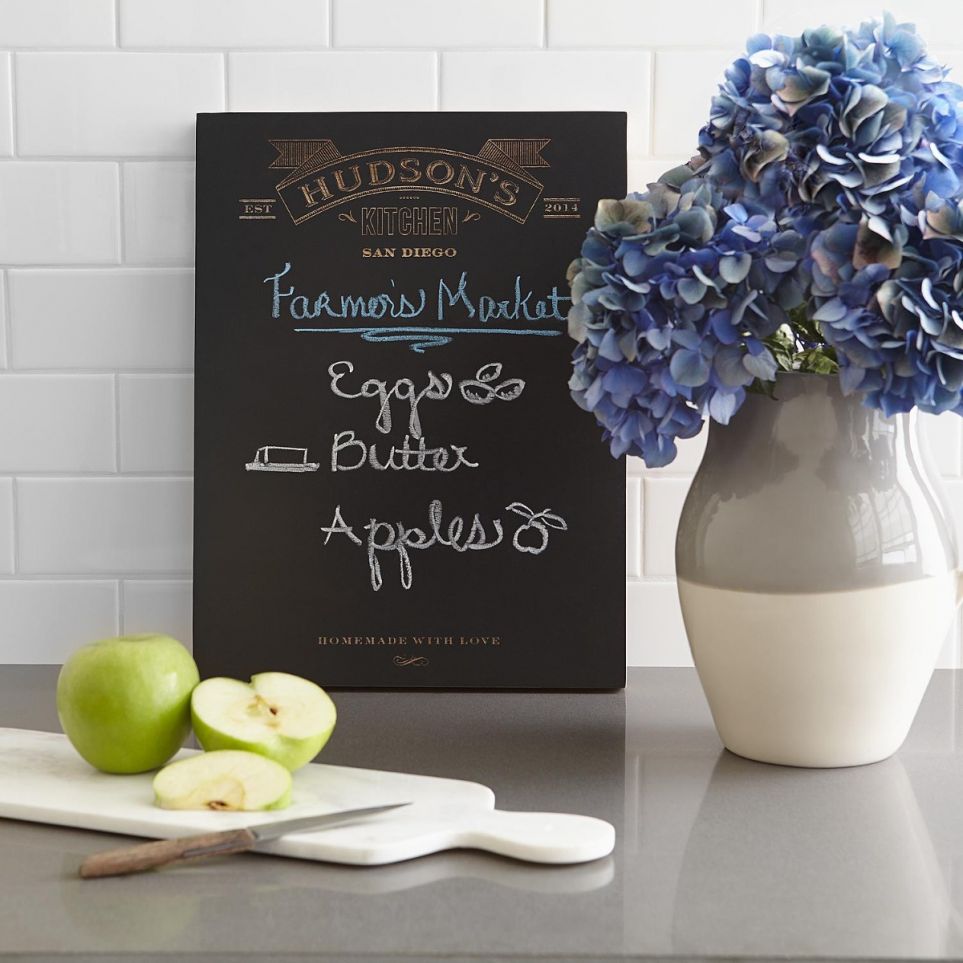 HUDSON'S
EST KITCHEN 2014
SAN DIEGO
Farmer's Market
Eggs
Butter
Apples
HOMEMADE WITH LOVE